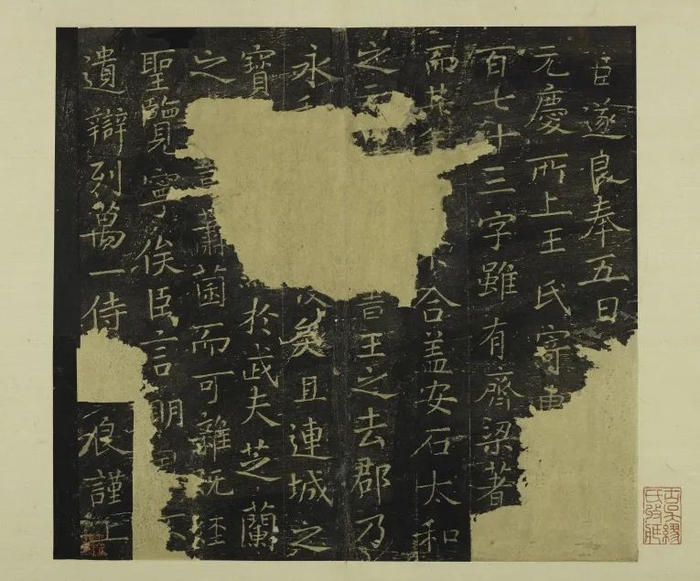 臣遂良奉五日
元慶所上王氏
百七十三字雖有齊梁著
而其 合蓋安石太和
之 王之去郡乃
永 矣且連城之
寶 於武夫芝蘭
之 蕭茵而可雜既經
聖覽寧俟臣言明
遺辯列萬一侍 良謹上